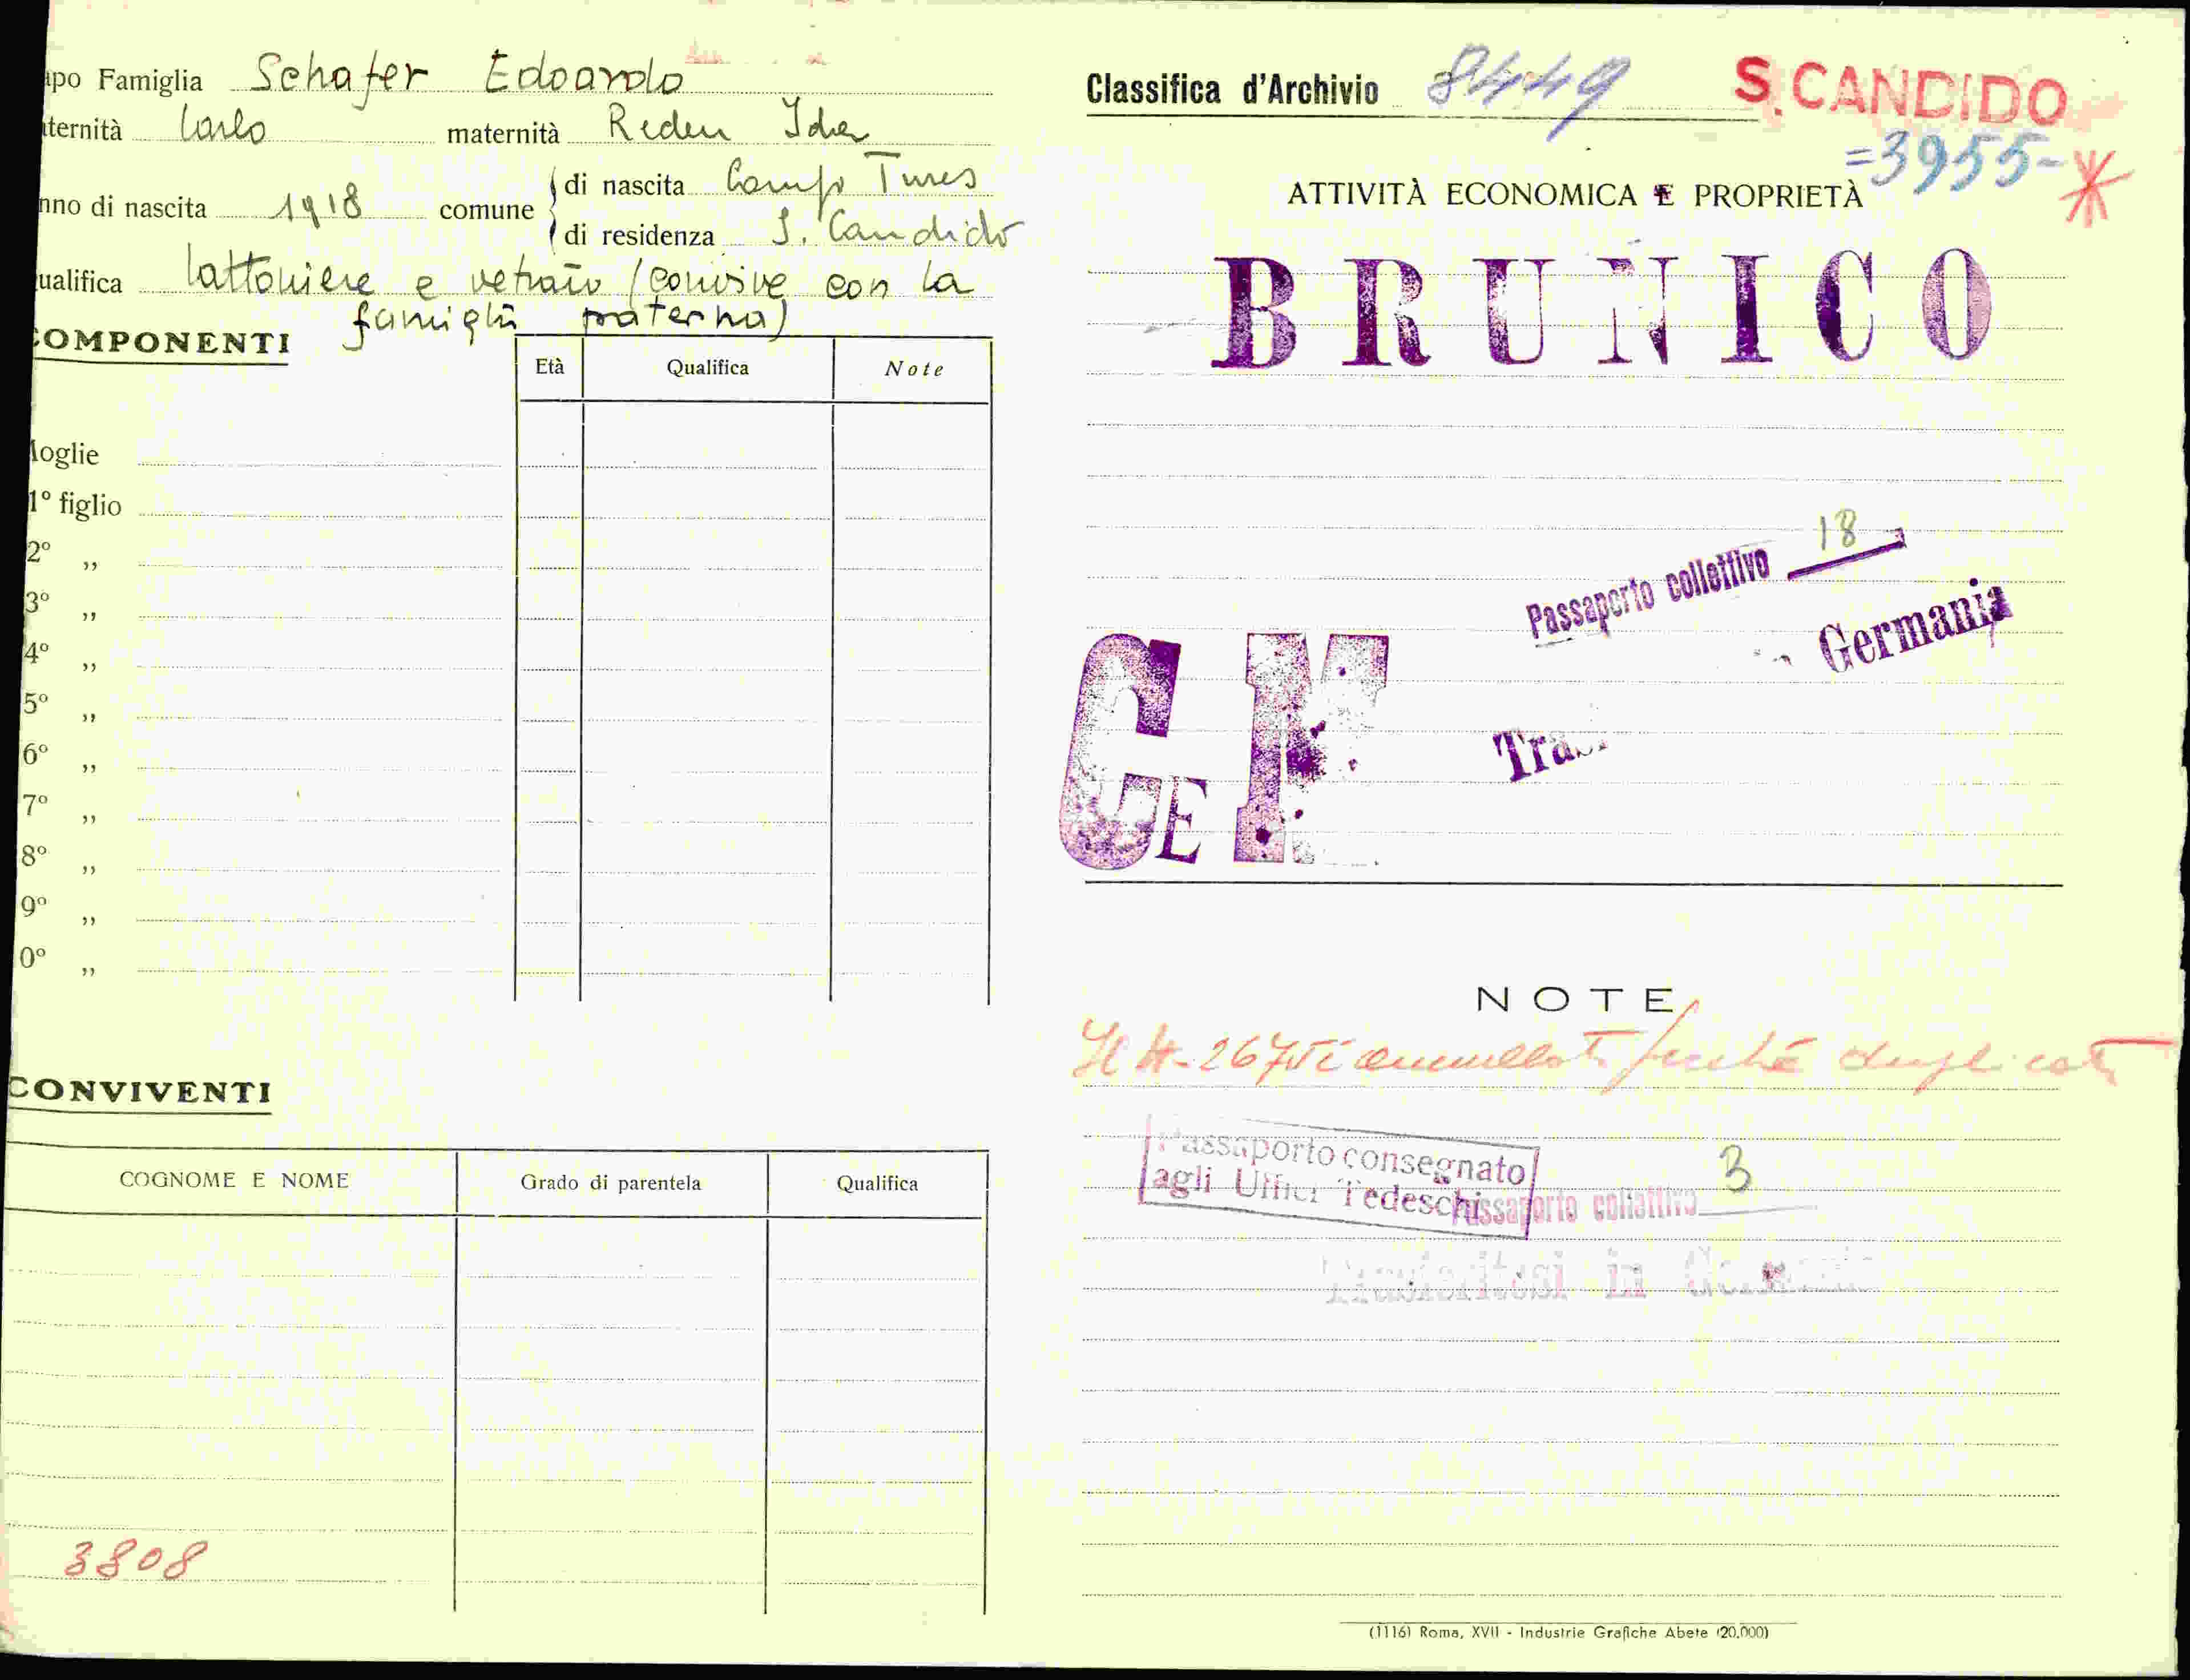 apo Famiglia Schafer Edoardo
aternità Carlo maternità Reden Ida
nno di nascita 1918 comune di nascita Campo Tures
di residenza S. Candido
ualifica lattoniere e vetraio (convive con la
famiglia paterna)
COMPONENTI
Età Qualifica Note
Moglie
1° figlio
2° ,,
3° ,,
4° ,,
5° ,,
6° ,,
7° ,,
8° ,,
9° ,,
0° ,,
CONVIVENTI
COGNOME E NOME Grado di parentela Qualifica
3808
Classifica d'Archivio 8449 S. CANDIDO
=3955-
ATTIVITÀ ECONOMICA E PROPRIETÀ
BRUNICO
Passaporto collettivo 18
Germania
CEN
Tra
NOTE
Il N. 2675 è annullato perché duplicato
Passaporto consegnato
agli Uffici Tedeschi
Passaporto collettivo 3
Trasferitosi in Germania
(1116) Roma, XVII - Industrie Grafiche Abete (20.000)